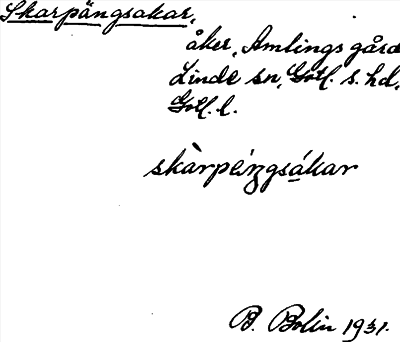 Skarpängsakar,
åker, Amlings gård
Linde sn, Gotl. s. hd,
Gotl. l.
skàrpéŋgsákar
B. Bolin 1931.